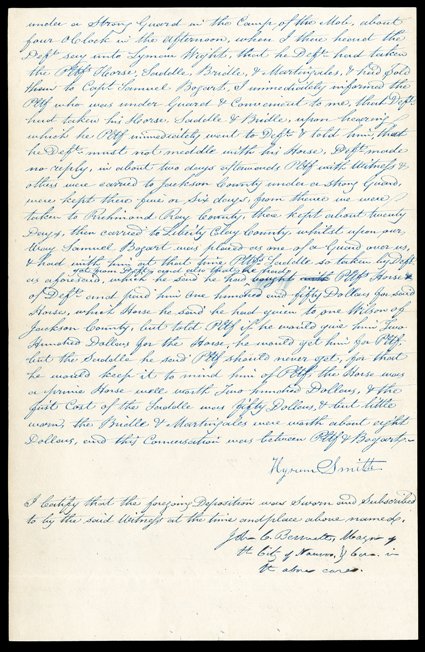 under a Strong Guard in the Camp of the Mob, about
four OClock in the afternoon, when I there heard the
Deft say unto Lyman Wight, that he Deft had taken
the Pltfs Horse, Saddle, Bridle, & Martingales, & had sold
them to Capt Samuel Bogart, I immediately informed the
Pltf who was under Guard & Convenient to me, that Deft
had taken his Horse Saddle & Bridle, upon hearing
which he Pltf immediately went to Deft & told him, that
he Deft must not meddle with his Horse, Deft made
no reply, in about two days afterwards Pltf with Witness &
others were carried to Jackson County under a Strong Guard,
were kept there five or Six days, from thence we were
taken to Richmond Ray County, there kept about twenty
Days, then carried to Liberty Clay County whilst upon our
Way Samuel Bogart was placed as one of a Guard over us,
& had with him at that time Pltfs Saddle so taken by Deft
as aforesaid, which he said he had bought Pltfs Horse
got from Deft, and also that he had
of Deft and paid him one hundred and fifty Dollars for said
Horse, which Horse he said he had given to one Wilson of
Jackson County, but told Pltf if he would give him Two
Hundred Dollars for the Horse, he would get him for Pltf
but the Saddle he said Pltf should never get, for that
he would keep it to mind him of Pltf, the Horse was
a prime Horse well worth Two hundred Dollars, & the
first Cost of the Saddle was fifty Dollars, & but little
worn, the Bridle & Martingales were worth about eight
Dollars, and this Conversation was between Pltf & Bogart
Hyrum Smith
I Certify that the foregoing Deposition was Sworn and Subscribed
to by the said Witness at the time and place above named,
John C. Bennett, Mayor of
the City of Nauvoo, & Com. in
the above case.